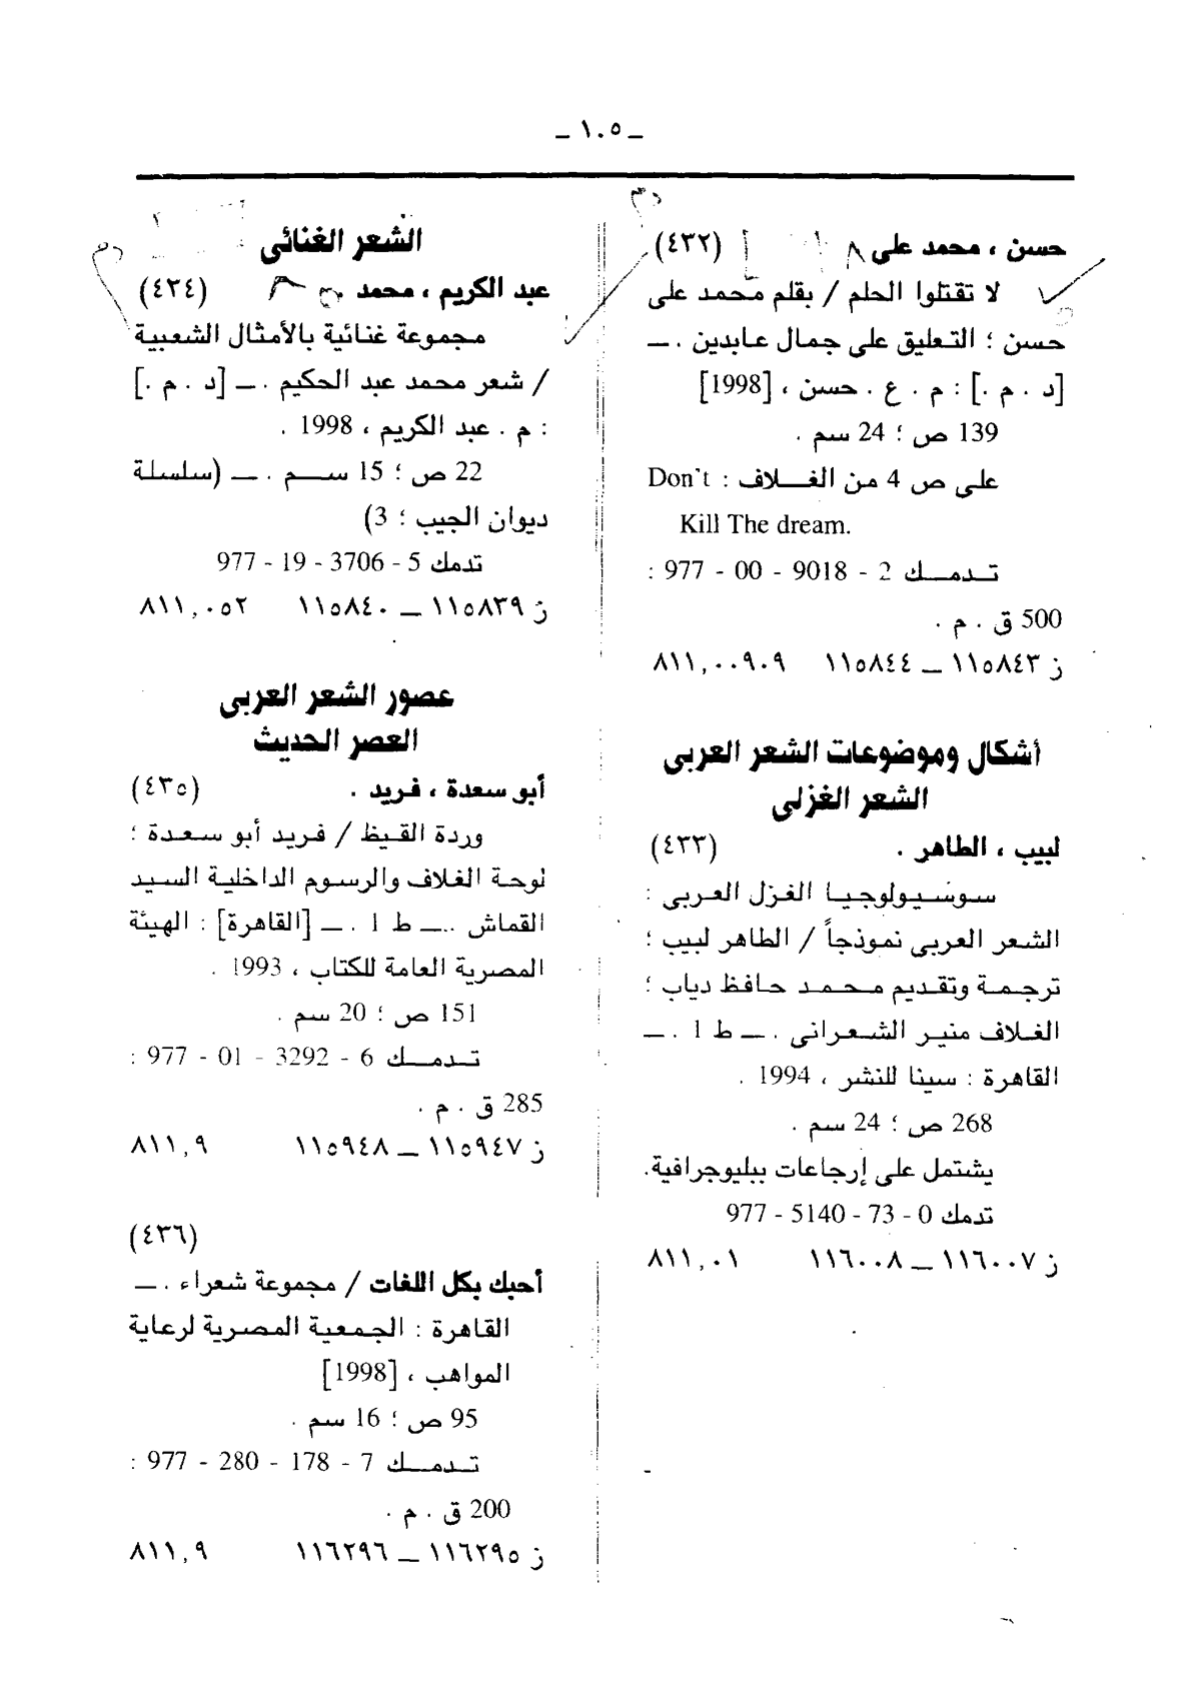 ـ ١٠٥ ـ
حسن ، محمد على (٤٣٢)
لا تقتلوا الحلم / بقلم محمد على
حسن ؛ التعليق على جمال عابدين . ـ
[د . م .] : م . ع . حسن ، [1998]
139 ص ؛ 24 سم .
على ص 4 من الغلاف : Don't
Kill The dream.
تدمك 2 - 9018 - 00 - 977 :
500 ق . م .
ز ١١٥٨٤٣ ـ ١١٥٨٤٤ ٨١١,٠٠٩٠٩
أشكال وموضوعات الشعر العربى
الشعر الغزلى
لبيب ، الطاهر . (٤٣٣)
سوسيولوجيا الغزل العربى :
الشعر العربى نموذجاً / الطاهر لبيب ؛
ترجمة وتقديم محمد حافظ دياب ؛
الغلاف منير الشعرانى . ـ ط 1 . ـ
القاهرة : سينا للنشر ، 1994 .
268 ص ؛ 24 سم .
يشتمل على إرجاعات ببليوجرافية.
تدمك 0 - 73 - 5140 - 977
ز ١١٦٠٠٧ ـ ١١٦٠٠٨ ٨١١,٠١
الشعر الغنائى
عبد الكريم ، محمد (٤٣٤)
مجموعة غنائية بالأمثال الشعبية
/ شعر محمد عبد الحكيم . ـ [د . م .]
: م . عبد الكريم ، 1998 .
22 ص ؛ 15 سم . ـ (سلسلة
ديوان الجيب ؛ 3)
تدمك 5 - 3706 - 19 - 977
ز ١١٥٨٣٩ ـ ١١٥٨٤٠ ٨١١,٠٥٢
عصور الشعر العربى
العصر الحديث
أبو سعدة ، فريد . (٤٣٥)
وردة القيظ / فريد أبو سعدة ؛
لوحة الغلاف والرسوم الداخلية السيد
القماش .. ـ ط 1 . ـ [القاهرة] : الهيئة
المصرية العامة للكتاب ، 1993 .
151 ص ؛ 20 سم .
تدمك 6 - 3292 - 01 - 977 :
285 ق . م .
ز ١١٥٩٤٧ ـ ١١٥٩٤٨ ٨١١,٩
(٤٣٦)
أحبك بكل اللغات / مجموعة شعراء . ـ
القاهرة : الجمعية المصرية لرعاية
المواهب ، [1998]
95 ص ؛ 16 سم .
تدمك 7 - 178 - 280 - 977 :
200 ق . م .
ز ١١٦٢٩٥ ـ ١١٦٢٩٦ ٨١١,٩